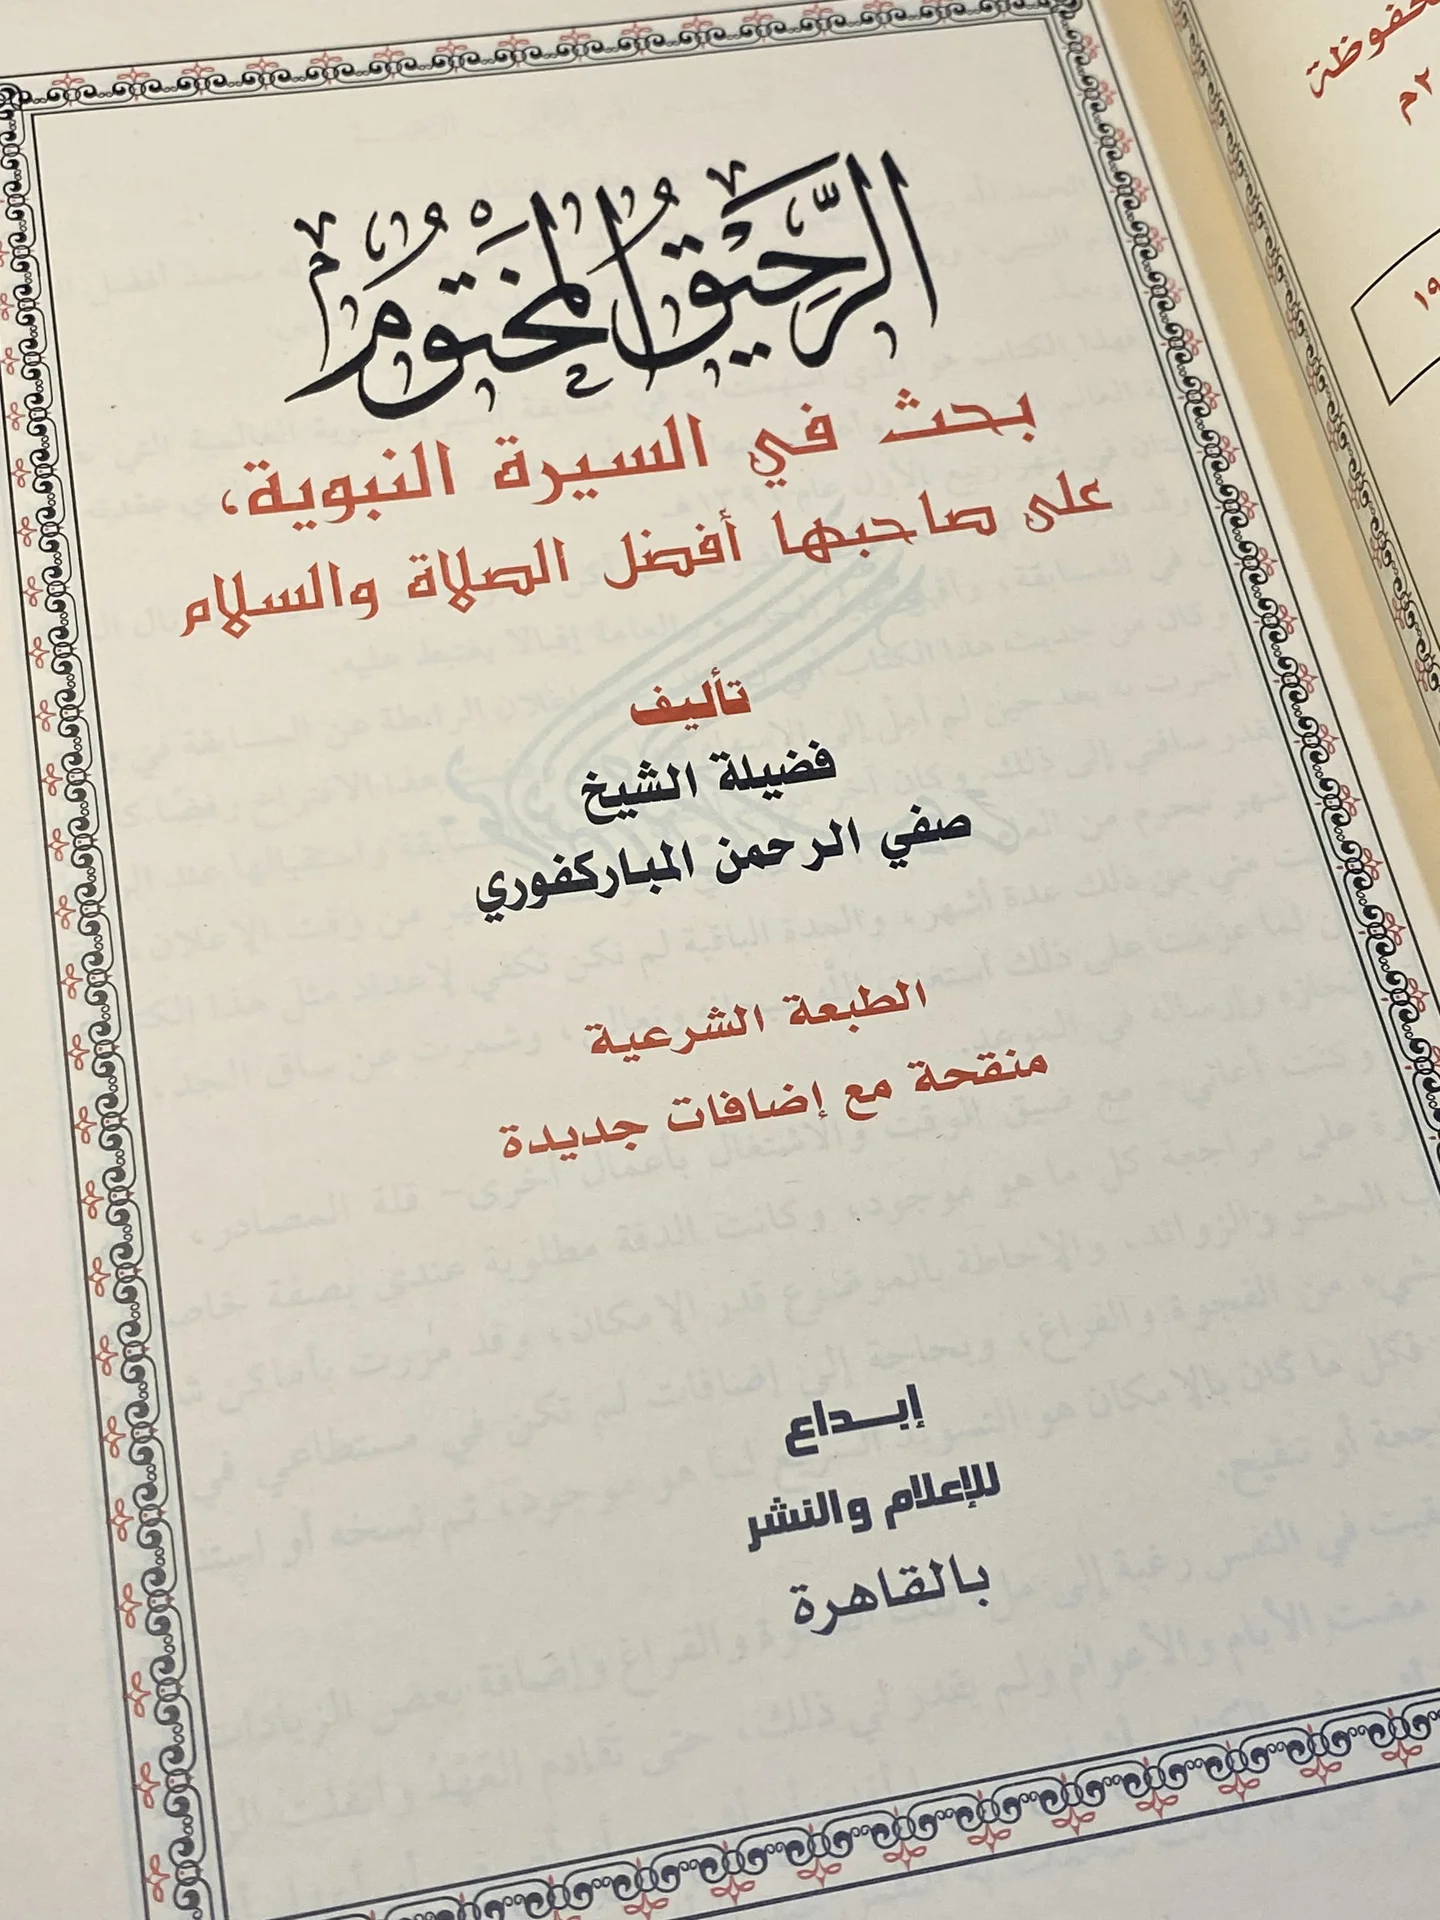 الرَّحِيقُ المَخْتُومُ
بحث في السيرة النبوية،
على صاحبها أفضل الصلاة والسلام
تأليف
فضيلة الشيخ
صفي الرحمن المباركفوري
الطبعة الشرعية
منقحة مع إضافات جديدة
إبداع
للإعلام والنشر
بالقاهرة